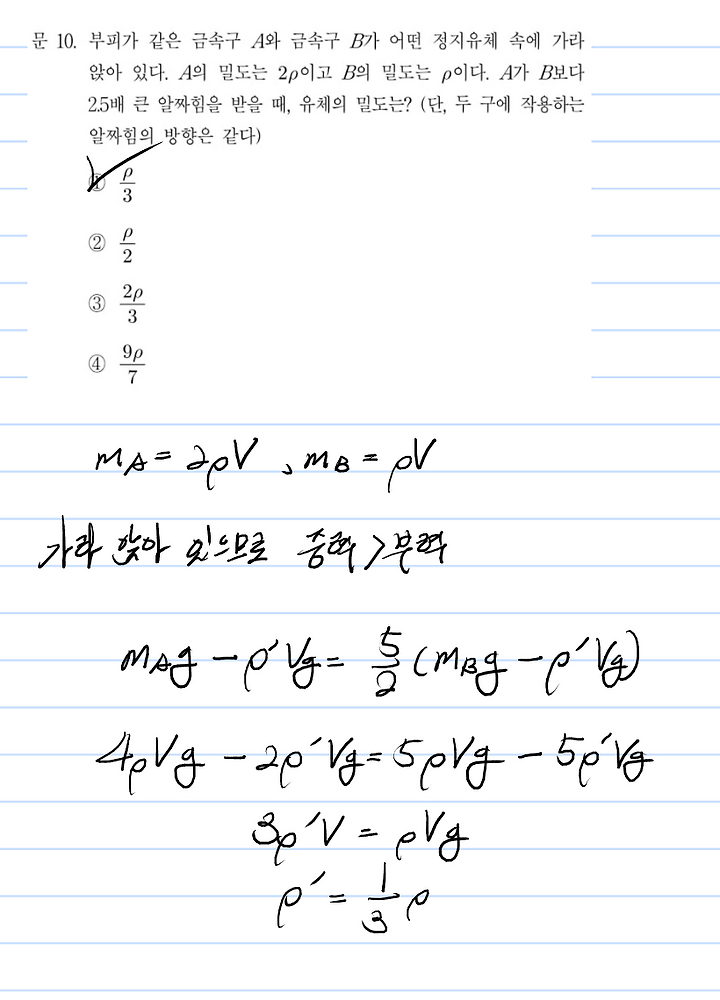 문 10. 부피가 같은 금속구 A와 금속구 B가 어떤 정지유체 속에 가라
앉아 있다. A의 밀도는 2ρ이고 B의 밀도는 ρ이다. A가 B보다
2.5배 큰 알짜힘을 받을 때, 유체의 밀도는? (단, 두 구에 작용하는
알짜힘의 방향은 같다)
① ρ/3
② ρ/2
③ 2ρ/3
④ 9ρ/7
m_A = 2ρV , m_B = ρV
가라 앉아 있으므로 중력 > 부력
m_A g - ρ′Vg = 5/2 (m_B g - ρ′Vg)
4ρVg - 2ρ′Vg = 5ρVg - 5ρ′Vg
3ρ′V = ρVg
ρ′ = 1/3 ρ